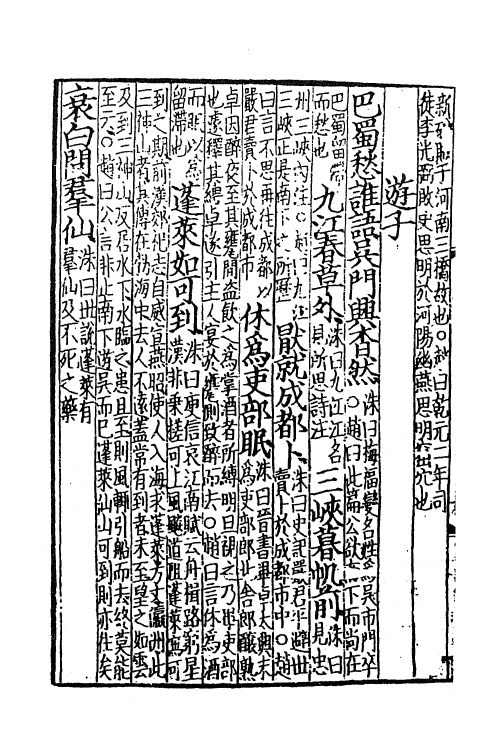 新
于河南三橋故也○趙曰乾元二年司
徒李光弼敗史思明於河陽幽燕思明
穴也
遊子
巴蜀愁誰語吳門興杳然
洙曰梅福變名姓為吳市門卒
○趙曰此篇公欲
下而尚在
巴蜀留滯
而愁也
九江春草外
洙曰九江江名
見所思詩注
三峽暮帆前
洙曰
見忠
州三峽內注○趙曰九江
三峽正是南下之所歷
厭就成都卜
洙曰史記嚴君平避世
賣卜於成都市中○趙
曰言不思再往成都以
嚴君賣卜於成都市
休為吏部眠
洙曰晉書畢卓太興末
為吏部郎比舍郎釀熟
卓因醉夜至其甕間盜飲之為掌酒者所縛明旦視之乃畢吏部
也遽釋其縛卓遂引主人宴於甕側致醉而去○趙曰言休為酒
而眠以為
留滯也
蓬萊如可到
洙曰庾信哀江南賦云舟楫路窮星
漢非乘槎可上風飈道阻蓬萊無可
到之期前漢郊祀志自威宣燕昭使人入海求蓬萊方丈瀛洲此
三神山者其傳在渤海中去人不遠蓋嘗有到者未至望之如雲
及到三神山反居水下水臨之患且至則風輒引船而去終莫能
至云○趙曰公言非止南下道吳而已蓬萊仙山可到則亦往矣
衰白問羣仙
洙曰世說蓬萊有
羣仙及不死之藥